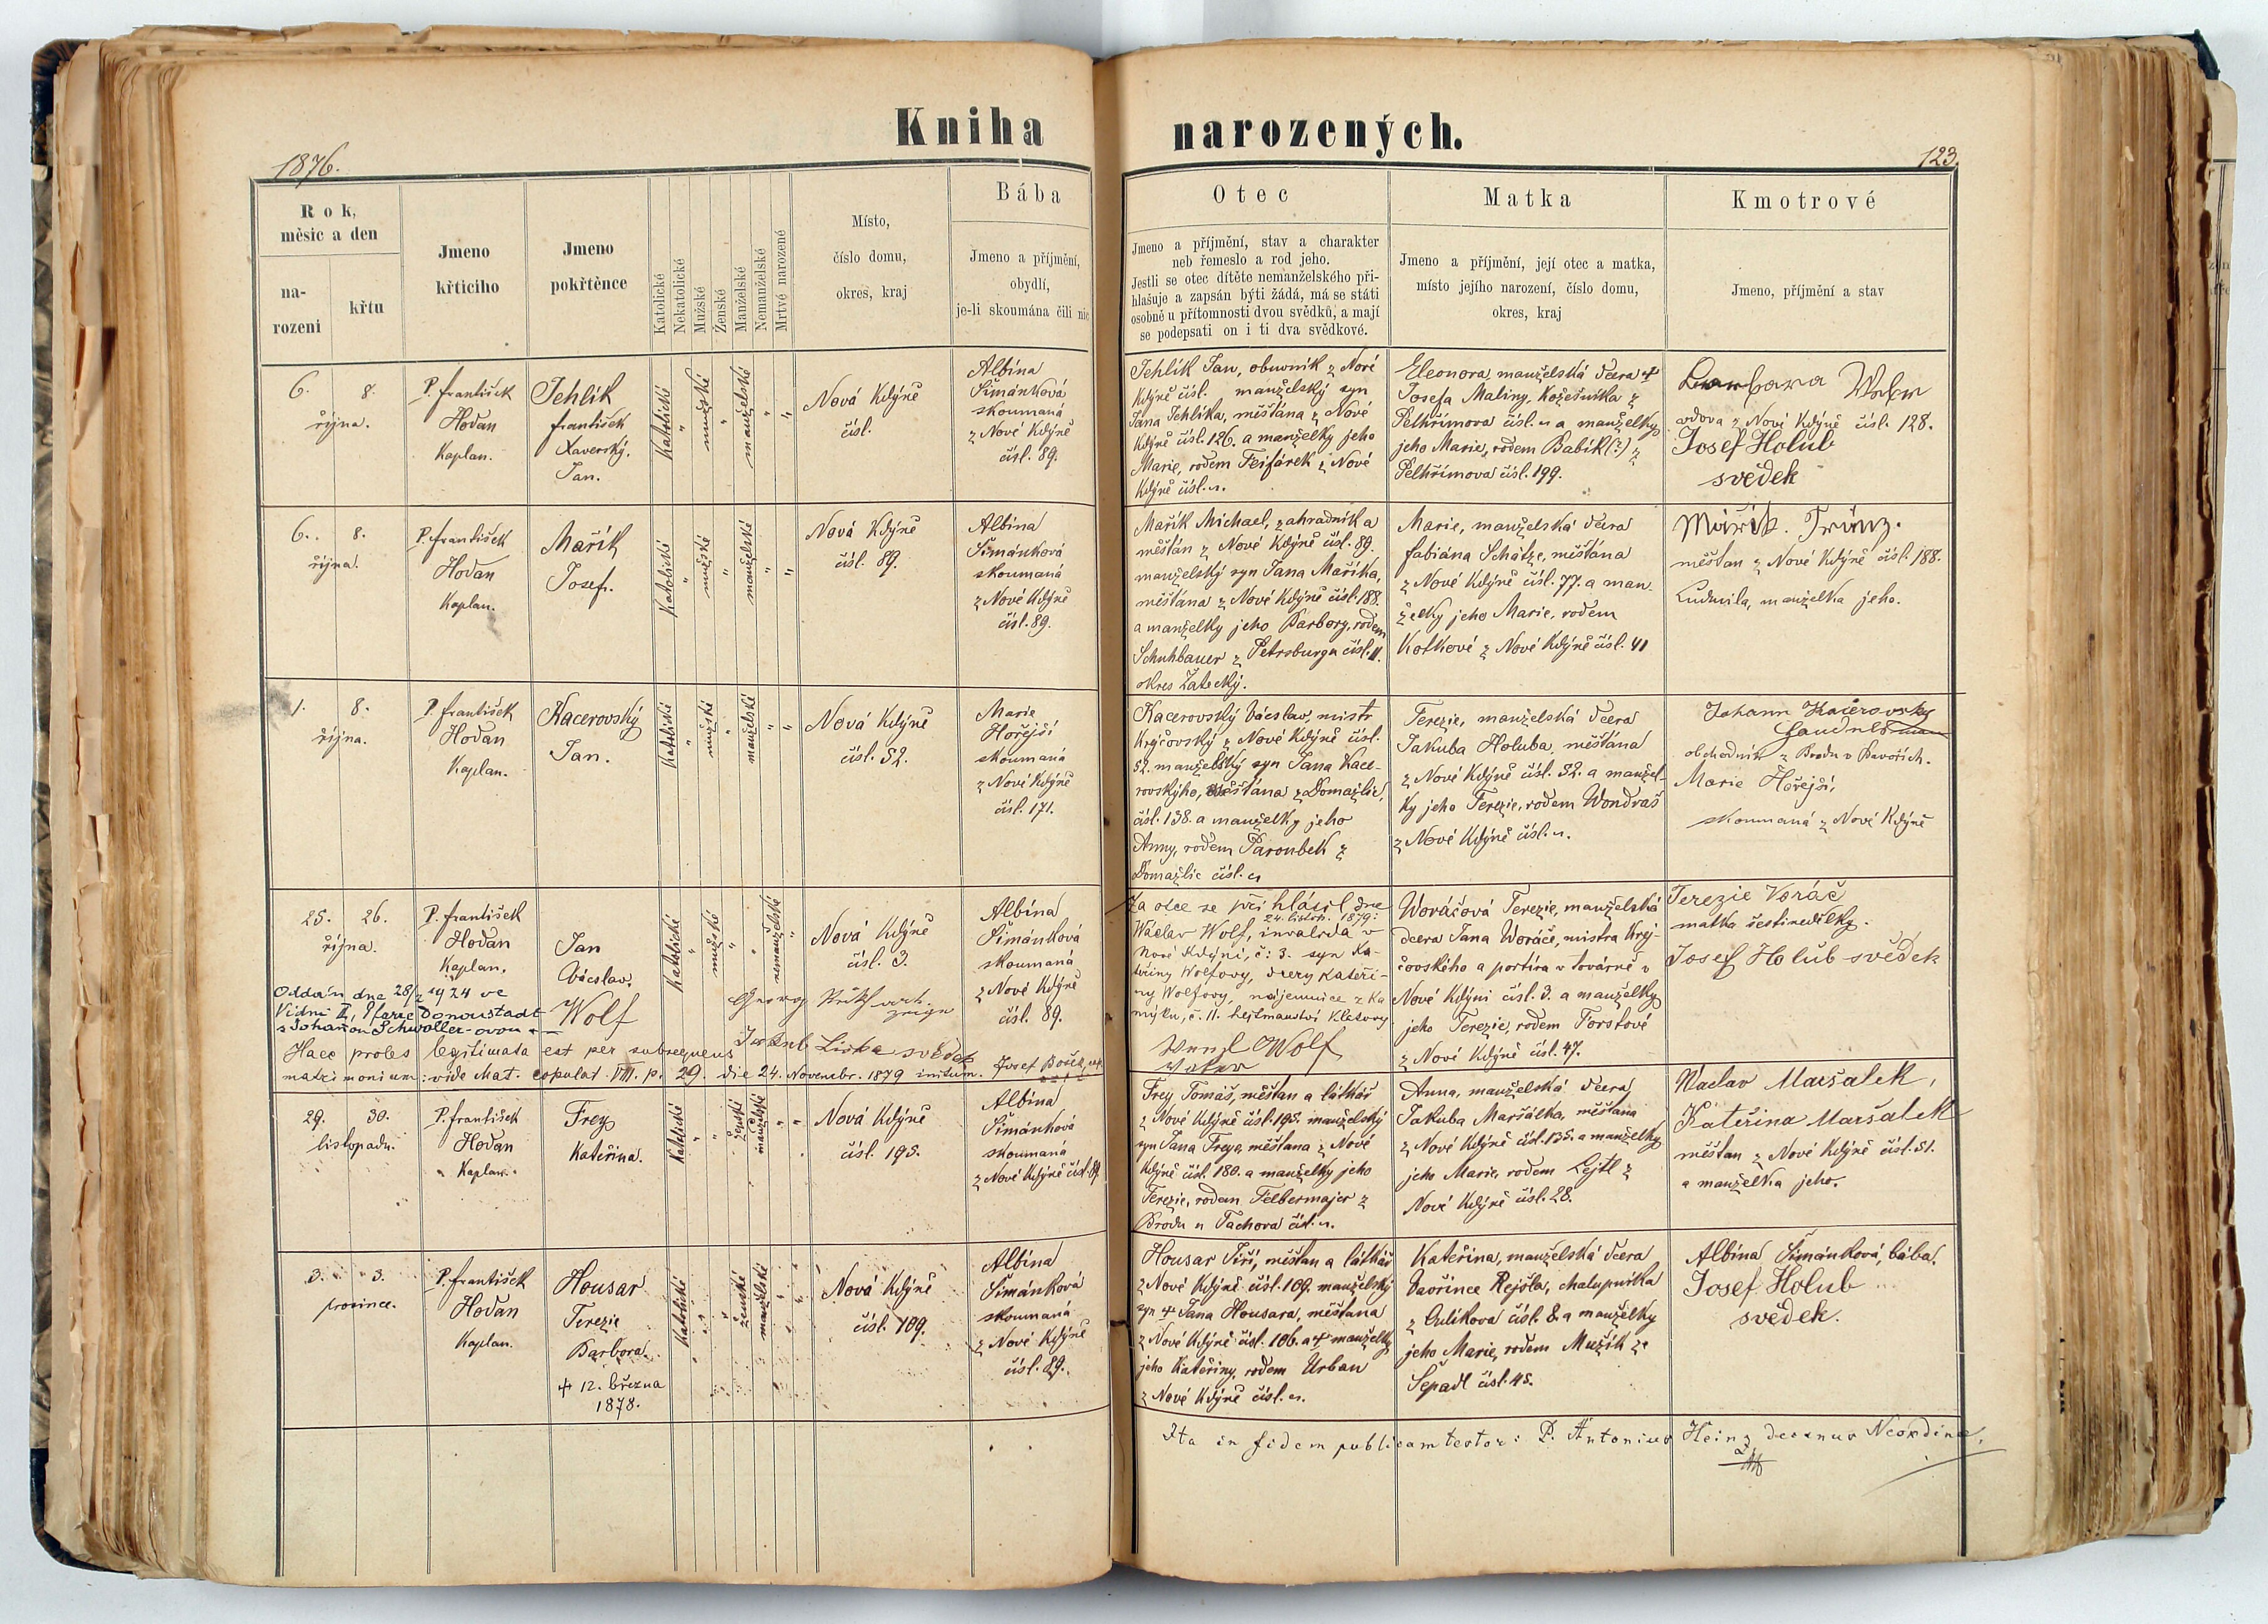 Kniha narozených.
1876.
123.
Rok, měsíc a den
narození
křtu
Jmeno křtícího
Jmeno pokřtěnce
Katolické
Nekatolické
Mužské
Ženské
Manželské
Nemanželské
Mrtvé narozené
Místo,
číslo domu,
okres, kraj
Bába
Jmeno a příjmění,
obydlí,
je-li skoumána čili nic
Otec
Jmeno a příjmění, stav a charakter
neb řemeslo a rod jeho.
Jestli se otec dítěte nemanželského při-
hlašuje a zapsán býti žádá, má se státi
osobně u přítomnosti dvou svědků, a mají
se podepsati on i ti dva svědkové.
Matka
Jmeno a příjmění, její otec a matka,
místo jejího narození, číslo domu,
okres, kraj
Kmotrové
Jmeno, příjmění a stav
6. 8.
října.
P. František
Hodan
Kaplan.
Jehlík
František
Xaverský.
Jan.
Katolické
"
mužské
"
manželské
"
"
Nová Kdýně
čísl.
Albína
Šimánková
skoumaná
z Nové Kdýně
čísl. 89.
Jehlík Jan, obuvník z Nové
Kdýně čísl. manželský syn
Jana Jehlíka, měšťána z Nové
Kdýně čísl. 126. a manželky jeho
Marie, rodem Feifárek z Nové
Kdýně čísl. „.
Eleonora, manželská dcera †
Josefa Maliny, Kožešníka z
Pelhřimova čísl. „ a manželky
jeho Marie, rodem Babík (?) z
Pelhřimova čísl. 199.
Barbara
vdova z Nové Kdýně čísl. 128.
Josef Holub
svědek
6. 8.
října.
P. František
Hodan
Kaplan.
Mařík
Josef.
Katolické
"
mužské
"
manželské
"
"
Nová Kdýně
čísl. 89.
Albína
Šimánková
skoumaná
z Nové Kdýně
čísl. 89.
Mařík Michael, zahradník a
měšťán z Nové Kdýně čísl. 89.
manželský syn Jana Maříka,
měšťána z Nové Kdýně čísl. 188.
a manželky jeho Barbory, rodem
Schuhbauer z Petrsburgu čísl. 11.
okres Žatecký.
Marie, manželská dcera
Fabiána Schätze, měšťána
z Nové Kdýně čísl. 77. a man-
želky jeho Marie, rodem
Kotkové z Nové Kdýně čísl. 41
měšťan z Nové Kdýně čísl. 188.
Ludmila, manželka jeho.
1. 8.
října.
P. František
Hodan
Kaplan.
Kacerovský
Jan.
Katolické
"
mužské
"
manželské
"
"
Nová Kdýně
čísl. 52.
Marie
Hořejší
skoumaná
z Nové Kdýně
čísl. 171.
Kacerovský Václav, mistr
Krejčovský z Nové Kdýně čísl.
52. manželský syn Jana Kace-
rovskýho, měšťána z Domažlic,
čísl. 138. a manželky jeho
Anny, rodem Paroubek z
Domažlic čísl. „
Terezie, manželská dcera
Jakuba Holuba, měšťána
z Nové Kdýně čísl. 52. a manžel-
ky jeho Terezie, rodem Wondraš
z Nové Kdýně čísl. „.
Johann Kačerovsky
Handelsman
obchodník z Brodu v Bavořích.
Marie Hořejší,
skoumaná z Nové Kdýně
25. 26.
října.
P. František
Hodan
Kaplan.
Jan
Václav.
Wolf
Katolické
"
mužské
"
"
nemanželské
"
Nová Kdýně
čísl. 3.
Albína
Šimánková
skoumaná
z Nové Kdýně
čísl. 89.
Oddán dne 28/2 1924 ve
Vídni II, Pfarre Donaustadt
s Johannou Schwoller-ovou
Haec proles legitimata est per subsequens
matrimonium: vide Mat. copulat. VIII. p. 29. die 24. Novembr. 1879 initum.
Georg
Jakub Liska svědek
Josef
Za otce se přihlásil dne
24. listop. 1879:
Wáclav Wolf, invalida v
Nové Kdýni, č: 3. syn Ka-
teřiny Wolfovy, dcery Kateři-
ny Wolfovy, nájemnice z Ka-
mýku, č. 11. hejtmanství Klatovy
Wolf
Woráčová Terezie, manželská
dcera Jana Woráče, mistra Krej-
čovského a portíra v továrně v
Nové Kdýni čísl. 3. a manželky
jeho Terezie, rodem Forstové
z Nové Kdýně čísl. 47.
Terezie Voráč
matka šestinedělky.
Josef Holub svědek
29. 30.
listopadu.
P. František
Hodan
Kaplan.
Frey
Kateřina.
Katolické
"
"
ženské
manželské
"
"
Nová Kdýně
čísl. 195.
Albína
Šimánková
skoumaná
z Nové Kdýně čísl. 89.
Frey Tomáš, měšťan a látkář
z Nové Kdýně čísl. 195. manželský
syn Jana Freye, měšťana z Nové
Kdýně čísl. 180. a manželky jeho
Terezie, rodem Felbermajer z
Brodu u Tachova čísl. „.
Anna, manželská dcera
Jakuba Maršálka, měšťana
z Nové Kdýně čísl. 135. a manželky
jeho Marie, rodem Lejtl z
Nové Kdýně čísl. 28.
Waclav Maršalek,
Kateřina Maršalek
měšťan z Nové Kdýně čísl. 51.
a manželka jeho.
3. 3.
prosince.
P. František
Hodan
Kaplan.
Housar
Terezie
Barbora.
† 12. března
1878.
Katolické
"
"
ženské
manželské
"
"
Nová Kdýně
čísl. 109.
Albína
Šimánková
skoumaná
z Nové Kdýně
čísl. 89.
Housar Jiří, měšťan a látkář
z Nové Kdýně čísl. 109. manželský
syn † Jana Housara, měšťana
z Nové Kdýně čísl. 106. a † manželky
jeho Kateřiny, rodem Urban
z Nové Kdýně čísl. „.
Kateřina, manželská dcera
Vavřince Rejšla, chalupníka
z Čulikova čísl. 8. a manželky
jeho Marie, rodem Mužík z
Šepadl čísl. 45.
Albína Šimánková, bába.
Josef Holub
svědek.
Ita in fidem publicam testor: P. Antonius Heinz decanus Neogdinae.